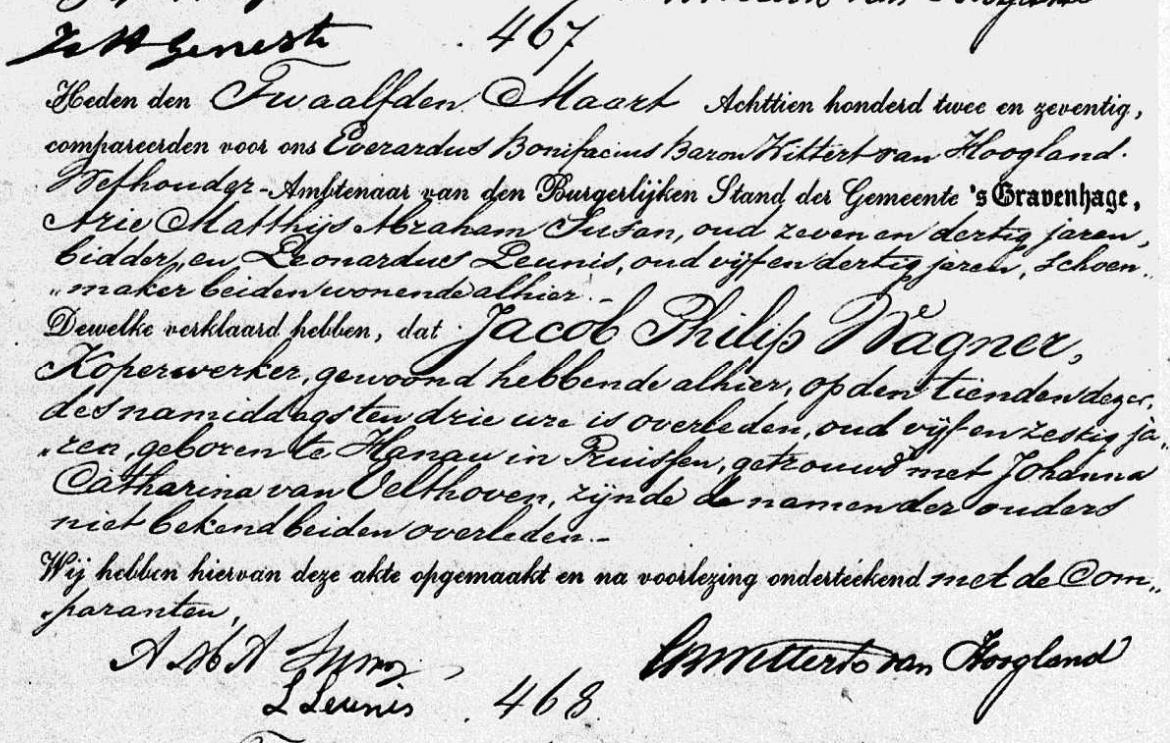 467
Heden den Twaalfden Maart Achttien honderd twee en zeventig,
compareerden voor ons Everardus Bonifacius Baron Wittert van Hoogland.
Wethouder-Ambtenaar van den Burgerlijken Stand der Gemeente 's Gravenhage,
Arie Matthijs Abraham Susan, oud zeven en dertig jaren,
bidder, en Leonardus Leunis, oud vijf en dertig jaren, schoen„
„maker beiden wonende alhier.-
Dewelke verklaard hebben, dat Jacob Philip Wagner,
Koperwerker, gewoond hebbende alhier, op den tienden dezer,
des namiddags ten drie ure is overleden, oud vijf en zestig ja„
„ren, geboren te Hanau in Pruissen, getrouwd met Johanna
Catharina van Velthoven, zijnde de namen der ouders
niet bekend beiden overleden.-
Wij hebben hiervan deze akte opgemaakt en na voorlezing onderteekend met de Com„
„paranten,
A M A Susan
van Hoogland
L Leunis
468